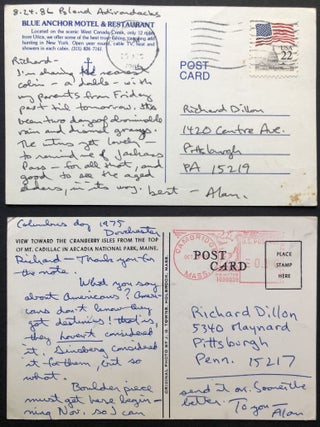 8-24-86 Poland Adirondacks
BLUE ANCHOR MOTEL & RESTAURANT
Located on the scenic West Canada Creek, only 12 miles
from Utica, we offer some of the best trout fishing, canoeing and
hunting in New York. Open year round, cable TV, heat and
showers in each cabin.
Richard—
I'm sharing the nearest
cabin — a double — with
my parents from Friday
past til tomorrow. It's
been two days of abominable
rain and dismal grays.
The Inn's yet lovely —
to remind me of Jackass
Pass — for all that, and
good to see the aged
elders, in its way. best — Alan.
POST
CARD
USA
22
Richard Dillon
1420 Centre Ave.
Pittsburgh
PA 15219
Columbus day 1975
Dorchester
VIEW TOWARD THE CRANBERRY ISLES FROM THE TOP
OF MT. CADILLAC IN ARCADIA NATIONAL PARK, MAINE.
Richard — Thank you for
the note.
What you say
about Americans? Ameri-
cans don't know they
got destinies! that is,
they haven't considered
it. Ginsberg considered
it for them, but so
what.
Boulder piece
must get here begin-
ning Nov. so I can
ORIGINAL PHOTO BY J. S. TOWER, HOLBROOK, MASS.
CAMBRIDGE
MASS.
POST
CARD
PLACE
STAMP
HERE
Richard Dillon
5340 Maynard
Pittsburgh
Penn. 15217
send it on. Sooner the
better. To you —
Alan